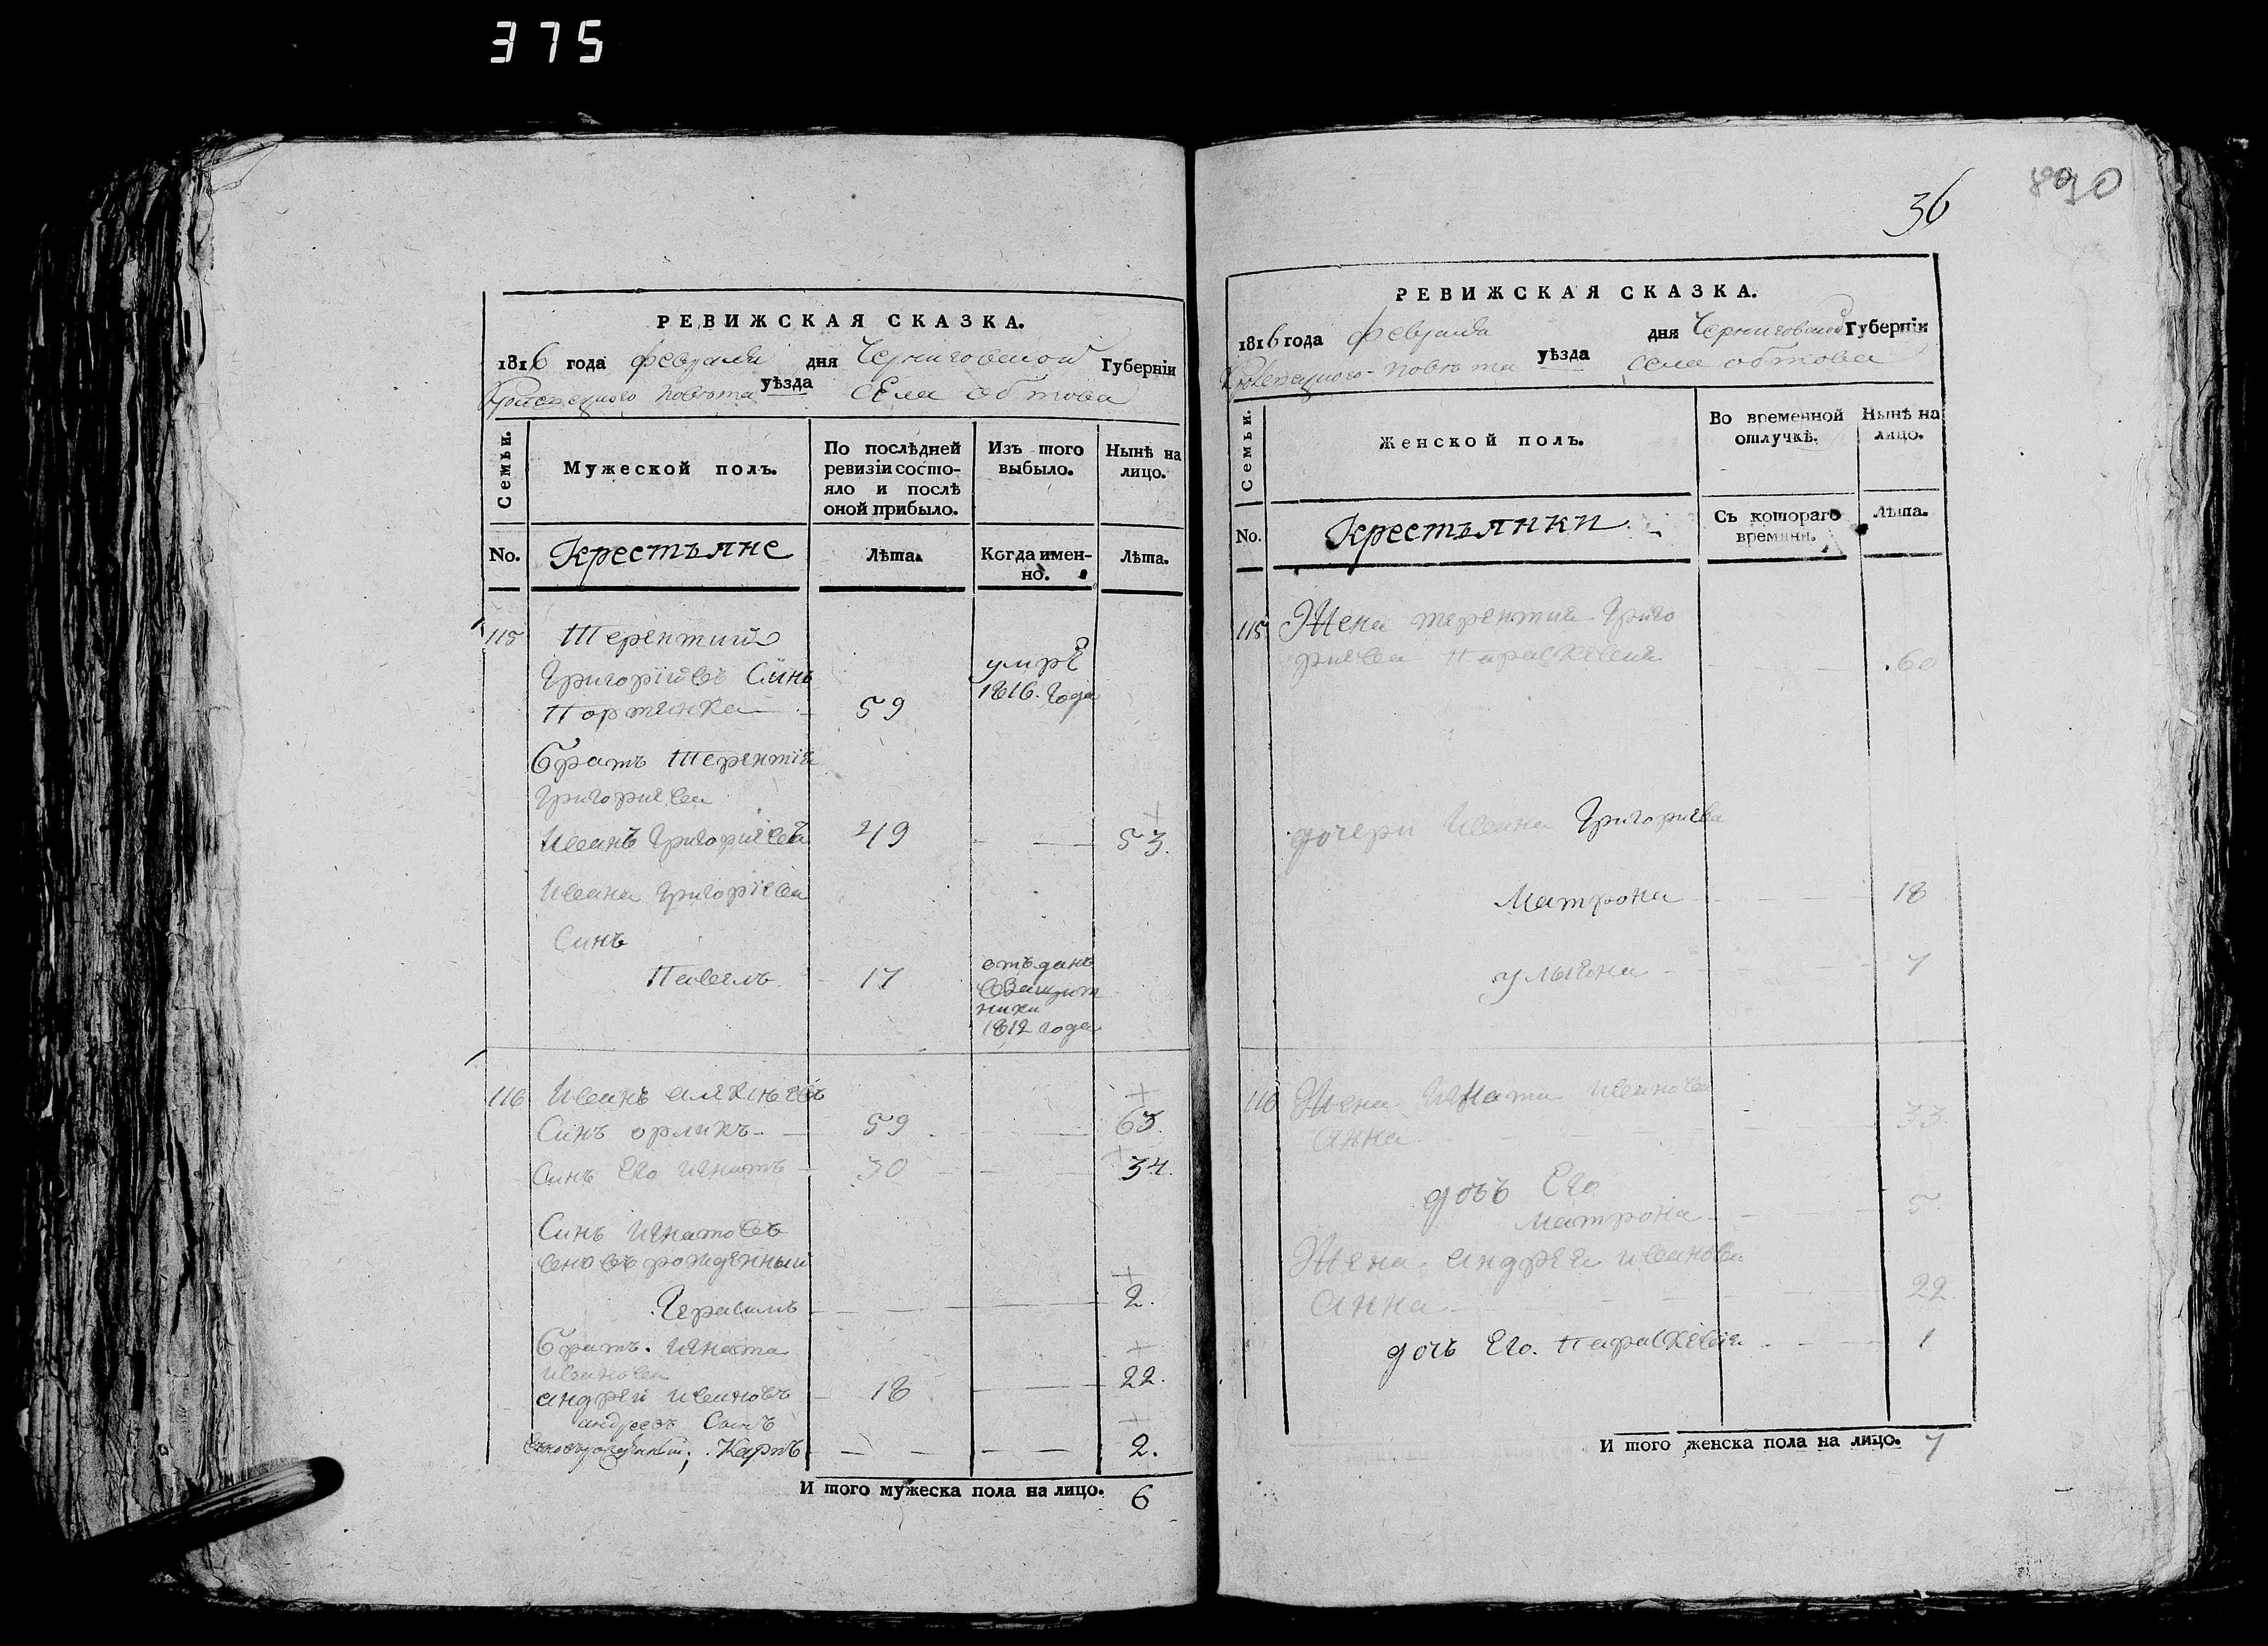 375
РЕВИЖСКАЯ СКАЗКА.
1816 года февраля дня Черниговской Губерніи
Кролевецкого повѣта уѣзда села обтова
Семьи.
Мужеской полъ.
По послѣдней ревизіи состояло и послѣ оной прибыло.
Изъ того выбыло.
Нынѣ на лицо.
No.
Крестъяне
Лѣта.
Когда именно.
Лѣта.
115 Терентий
Григорійевъ Синъ
Портянка 59
умре
1816. года
братъ Терентія
Григориева
Иванъ Григориевъ 49 53.
Ивана Григоріева
Синъ
Павелъ 17
отъданъ
1812 года
116 Иванъ
Синъ орликъ 59 63.
Синъ Его игнатъ 30 34.
Синъ игнатовъ
вновъ рожденный
Герасимъ 2.
братъ игната
иванова
андрей ивановъ 18 22.
андреевъ Синъ
Карпъ 2.
И того мужеска пола на лицо. 6
36
890
РЕВИЖСКАЯ СКАЗКА.
1816 года февраля дня Черниговской Губерніи
Кролевецкого повѣта уѣзда села обтова
Семьи.
Женской полъ.
Во временной отлучкѣ.
Нынѣ на лицо.
No.
Крестъянки
Съ котораго времяни.
Лѣта.
115 Жена терентия Григо
риева Параскевия 60
дочери Ивана Григориева
Матрона 18
улияна 7
116 Жена Игната иванова
анна 33
дочъ Его
Матрона 5
Жена андрея иванова
анна 22
дочъ Его Параскевия 1
И того женска пола на лицо. 7